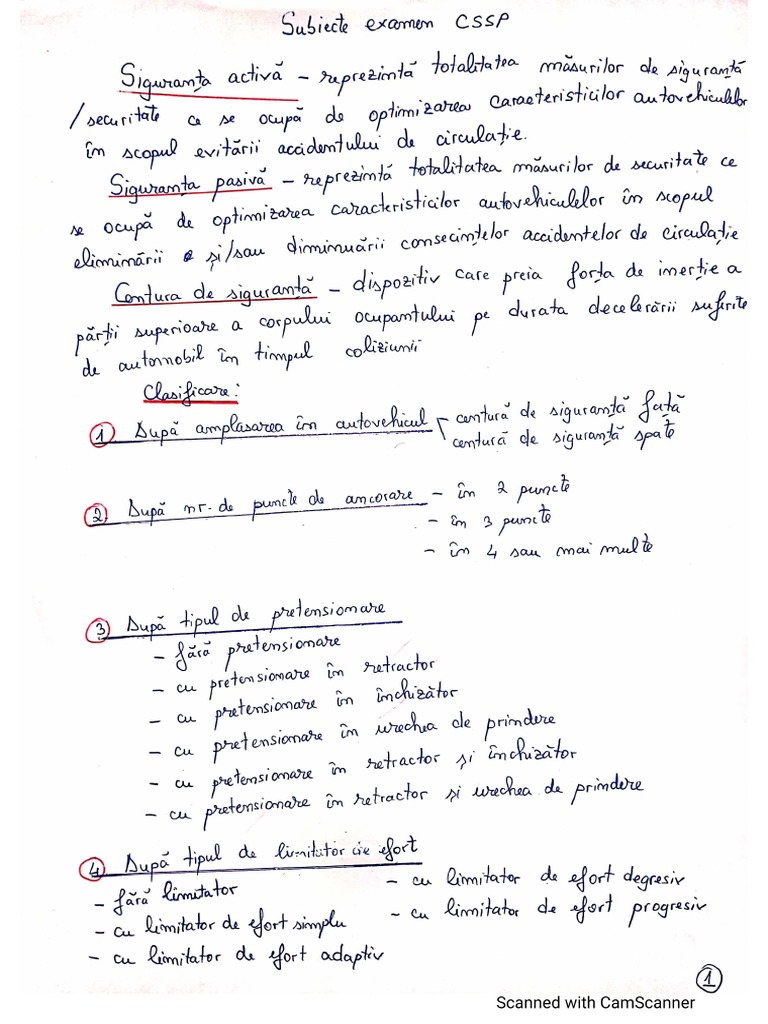 Subiecte examen CSSP
Siguranța activă – reprezintă totalitatea măsurilor de siguranță
/securitate ce se ocupă de optimizarea caracteristicilor autovehiculelor
în scopul evitării accidentului de circulație.
Siguranța pasivă – reprezintă totalitatea măsurilor de securitate ce
se ocupă de optimizarea caracteristicilor autovehiculelor în scopul
eliminării și/sau diminuării consecințelor accidentelor de circulație
Centura de siguranță – dispozitiv care preia forța de inerție a
părții superioare a corpului ocupantului pe durata decelerării suferite
de automobil în timpul coliziunii
Clasificare:
1 După amplasarea în autovehicul centură de siguranță față
centură de siguranță spate
2 După nr. de puncte de ancorare – în 2 puncte
– în 3 puncte
– în 4 sau mai multe
3 După tipul de pretensionare
– fără pretensionare
– cu pretensionare în retractor
– cu pretensionare în închizător
– cu pretensionare în urechea de prindere
– cu pretensionare în retractor și închizător
– cu pretensionare în retractor și urechea de prindere
4 După tipul de limitator de efort
– fără limitator
– cu limitator de efort simplu
– cu limitator de efort adaptiv
– cu limitator de efort degresiv
– cu limitator de efort progresiv
1
Scanned with CamScanner